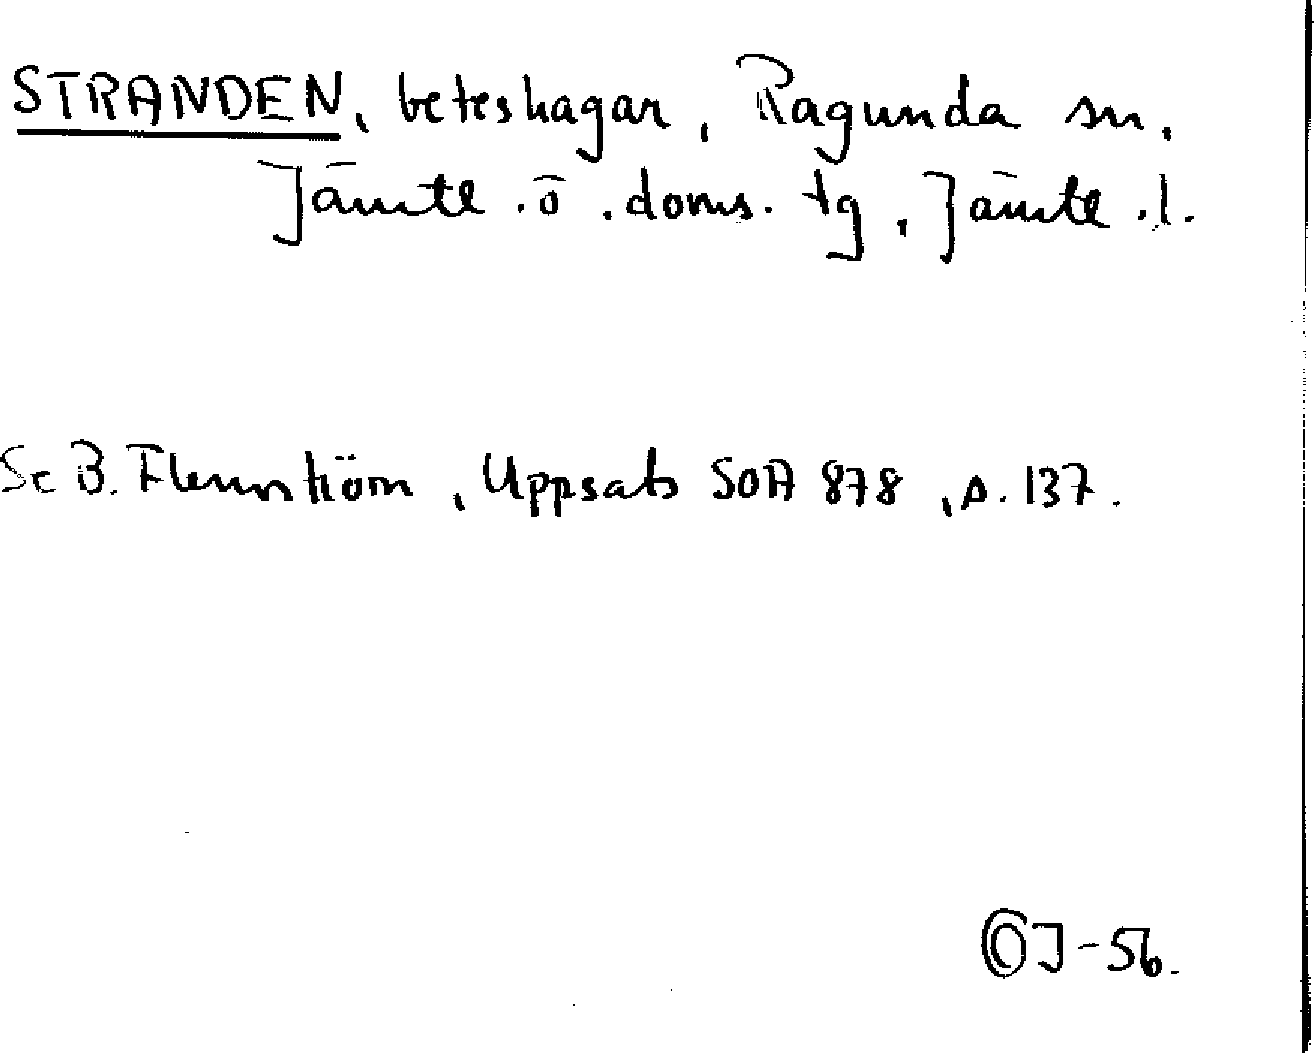 STRANDEN, beteshagar, Ragunda sn,
Jämtl. ö. doms. tg, Jämtl. l.
Se B. Flemström, Uppsats SOA 878, s. 137.
OJ-56.